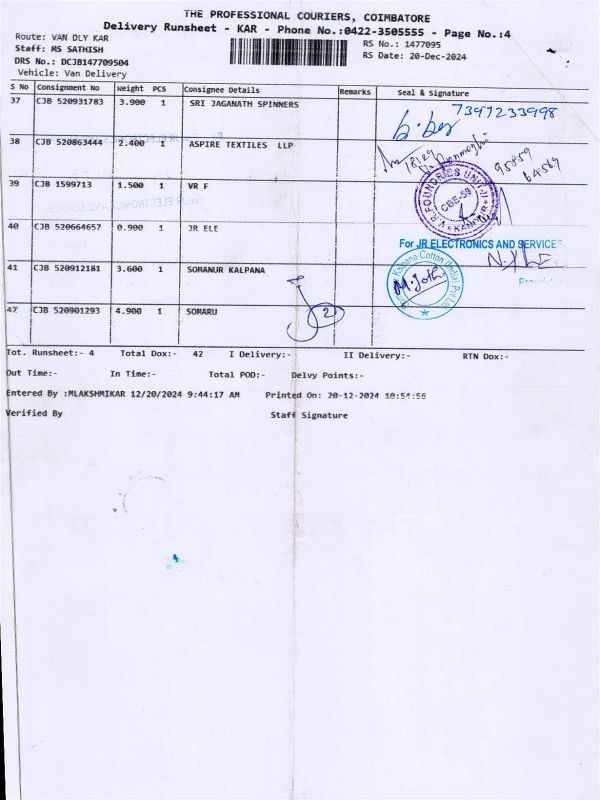 THE PROFESSIONAL COURIERS, COIMBATORE
Delivery Runsheet - KAR - Phone No.:0422-3505555 - Page No.:4
Route: VAN DLY KAR
RS No.: 1477095
Staff: MS SATHISH
RS Date: 20-Dec-2024
DRS No.: DCJB147709504
Vehicle: Van Delivery
S No Consignment No Weight PCS Consignee Details Remarks Seal & Signature
37 CJB 520931783 3.900 1 SRI JAGANATH SPINNERS
7397233998
38 CJB 520863444 2.400 1 ASPIRE TEXTILES LLP
95859
64569
39 CJB 1599713 1.500 1 VR F
V.R. FOUNDRIES UNIT-II
CBE-59
KANIYUR
40 CJB 520664657 0.900 1 JR ELE
For JR ELECTRONICS AND SERVICES
41 CJB 520912181 3.600 1 SOMANUR KALPANA
Kalpana Cotton (India) Pvt Ltd
M. Jothi
42 CJB 520901293 4.900 1 SOMARU
Tot. Runsheet:- 4 Total Dox:- 42 I Delivery:- II Delivery:- RTN Dox:-
Out Time:- In Time:- Total POD:- Delvy Points:-
Entered By :MLAKSHMIKAR 12/20/2024 9:44:17 AM Printed On: 20-12-2024 10:54:56
Verified By Staff Signature